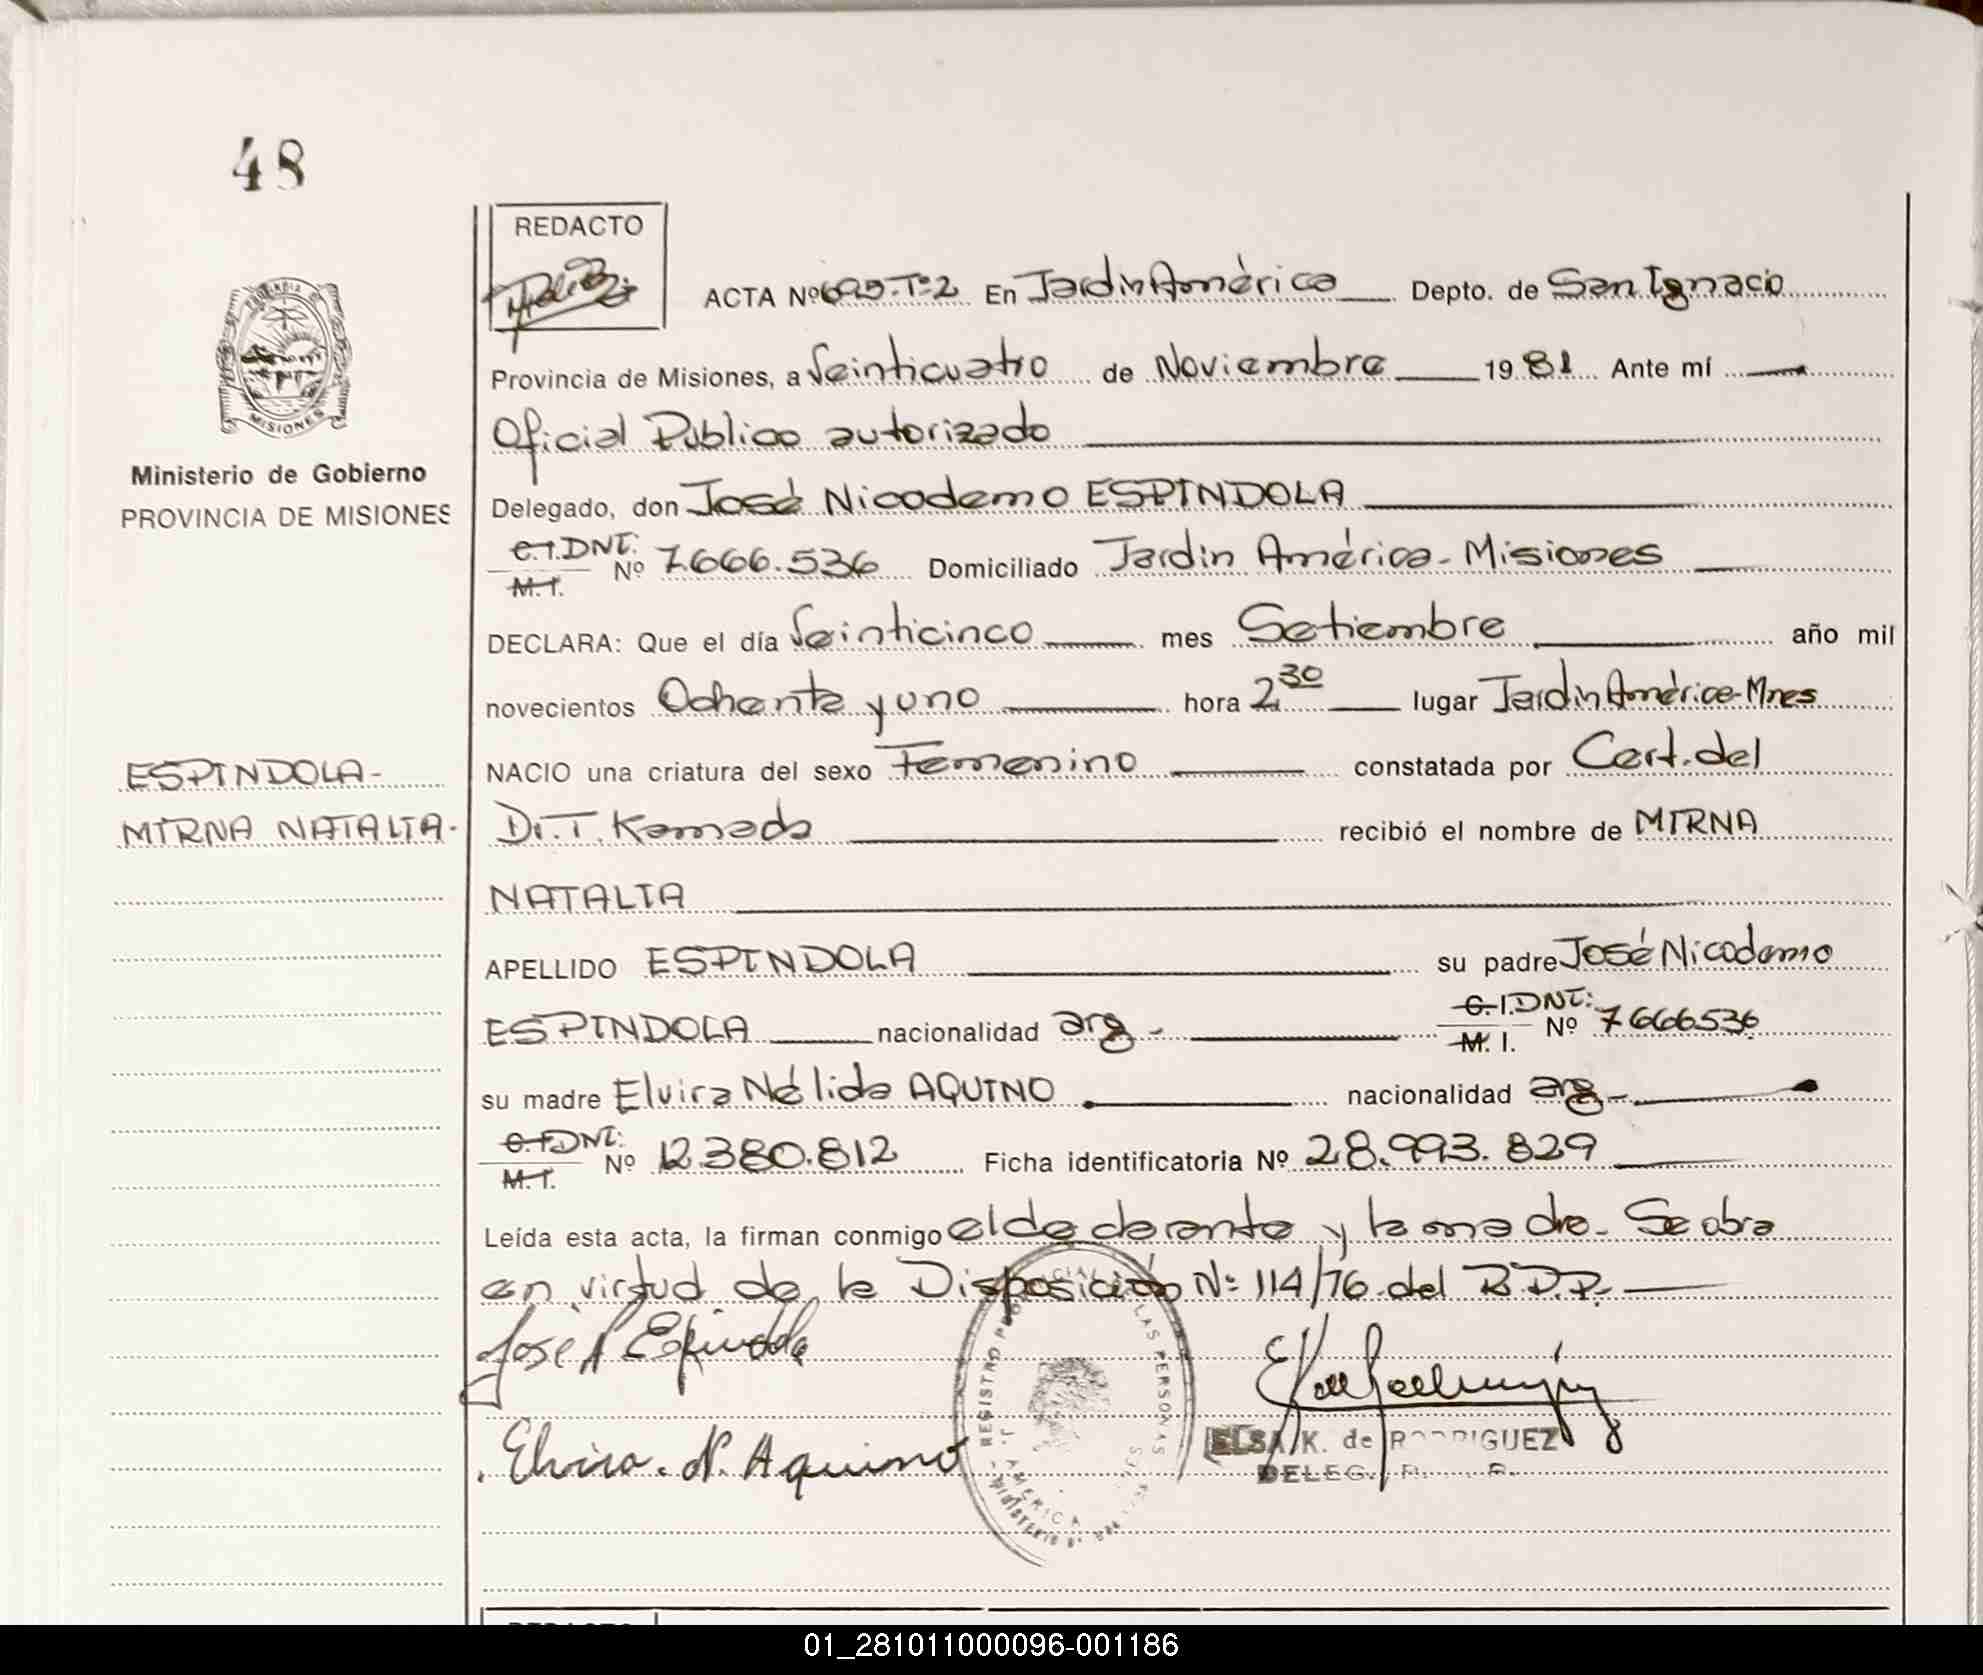 48
REDACTO
ACTA Nº 695-Tº2 En Jardín América Depto. de San Ignacio
Provincia de Misiones, a Veinticuatro de Noviembre 1981 Ante mí
Oficial Público autorizado
Ministerio de Gobierno
PROVINCIA DE MISIONES
MISIONES
Delegado, don José Nicodemo ESPINDOLA
C.I. DNI: M.I. Nº 7.666.536 Domiciliado Jardín América - Misiones
DECLARA: Que el día Veinticinco mes Setiembre año mil
novecientos Ochenta y uno hora 2.30 lugar Jardín América-Mnes
NACIO una criatura del sexo Femenino constatada por Cert. del
ESPINDOLA-
MIRNA NATALIA-
Dr. T. Kamada recibió el nombre de MIRNA
NATALIA
APELLIDO ESPINDOLA su padre José Nicodemo
ESPINDOLA nacionalidad arg- C.I. DNI: M.I. Nº 7666536
su madre Elvira Nélida AQUINO nacionalidad arg-
C.I. DNI: M.I. Nº 12.380.812 Ficha identificatoria Nº 28.993.829
Leída esta acta, la firman conmigo el declarante y la madre- Se abra
en virtud de la Disposición Nº 114/76 del
José N Espindola
Elvira. N. Aquino
REGISTRO LAS PERSONAS
AMERICA
ELSA K. de RODRIGUEZ
01_281011000096-001186